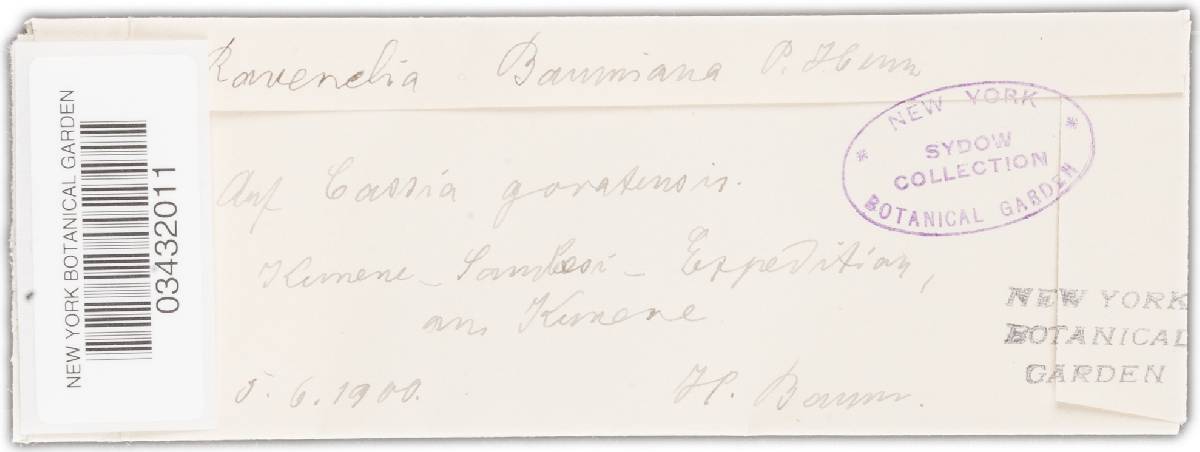 Ravenelia Baumiana P. Henn
Auf Cassia goratensis.
Kunene-Sambesi-Expedition,
am Kunene
5.6.1900. H. Baum.
NEW YORK
SYDOW
COLLECTION
BOTANICAL GARDEN
NEW YORK
BOTANICAL
GARDEN
NEW YORK BOTANICAL GARDEN
03432011